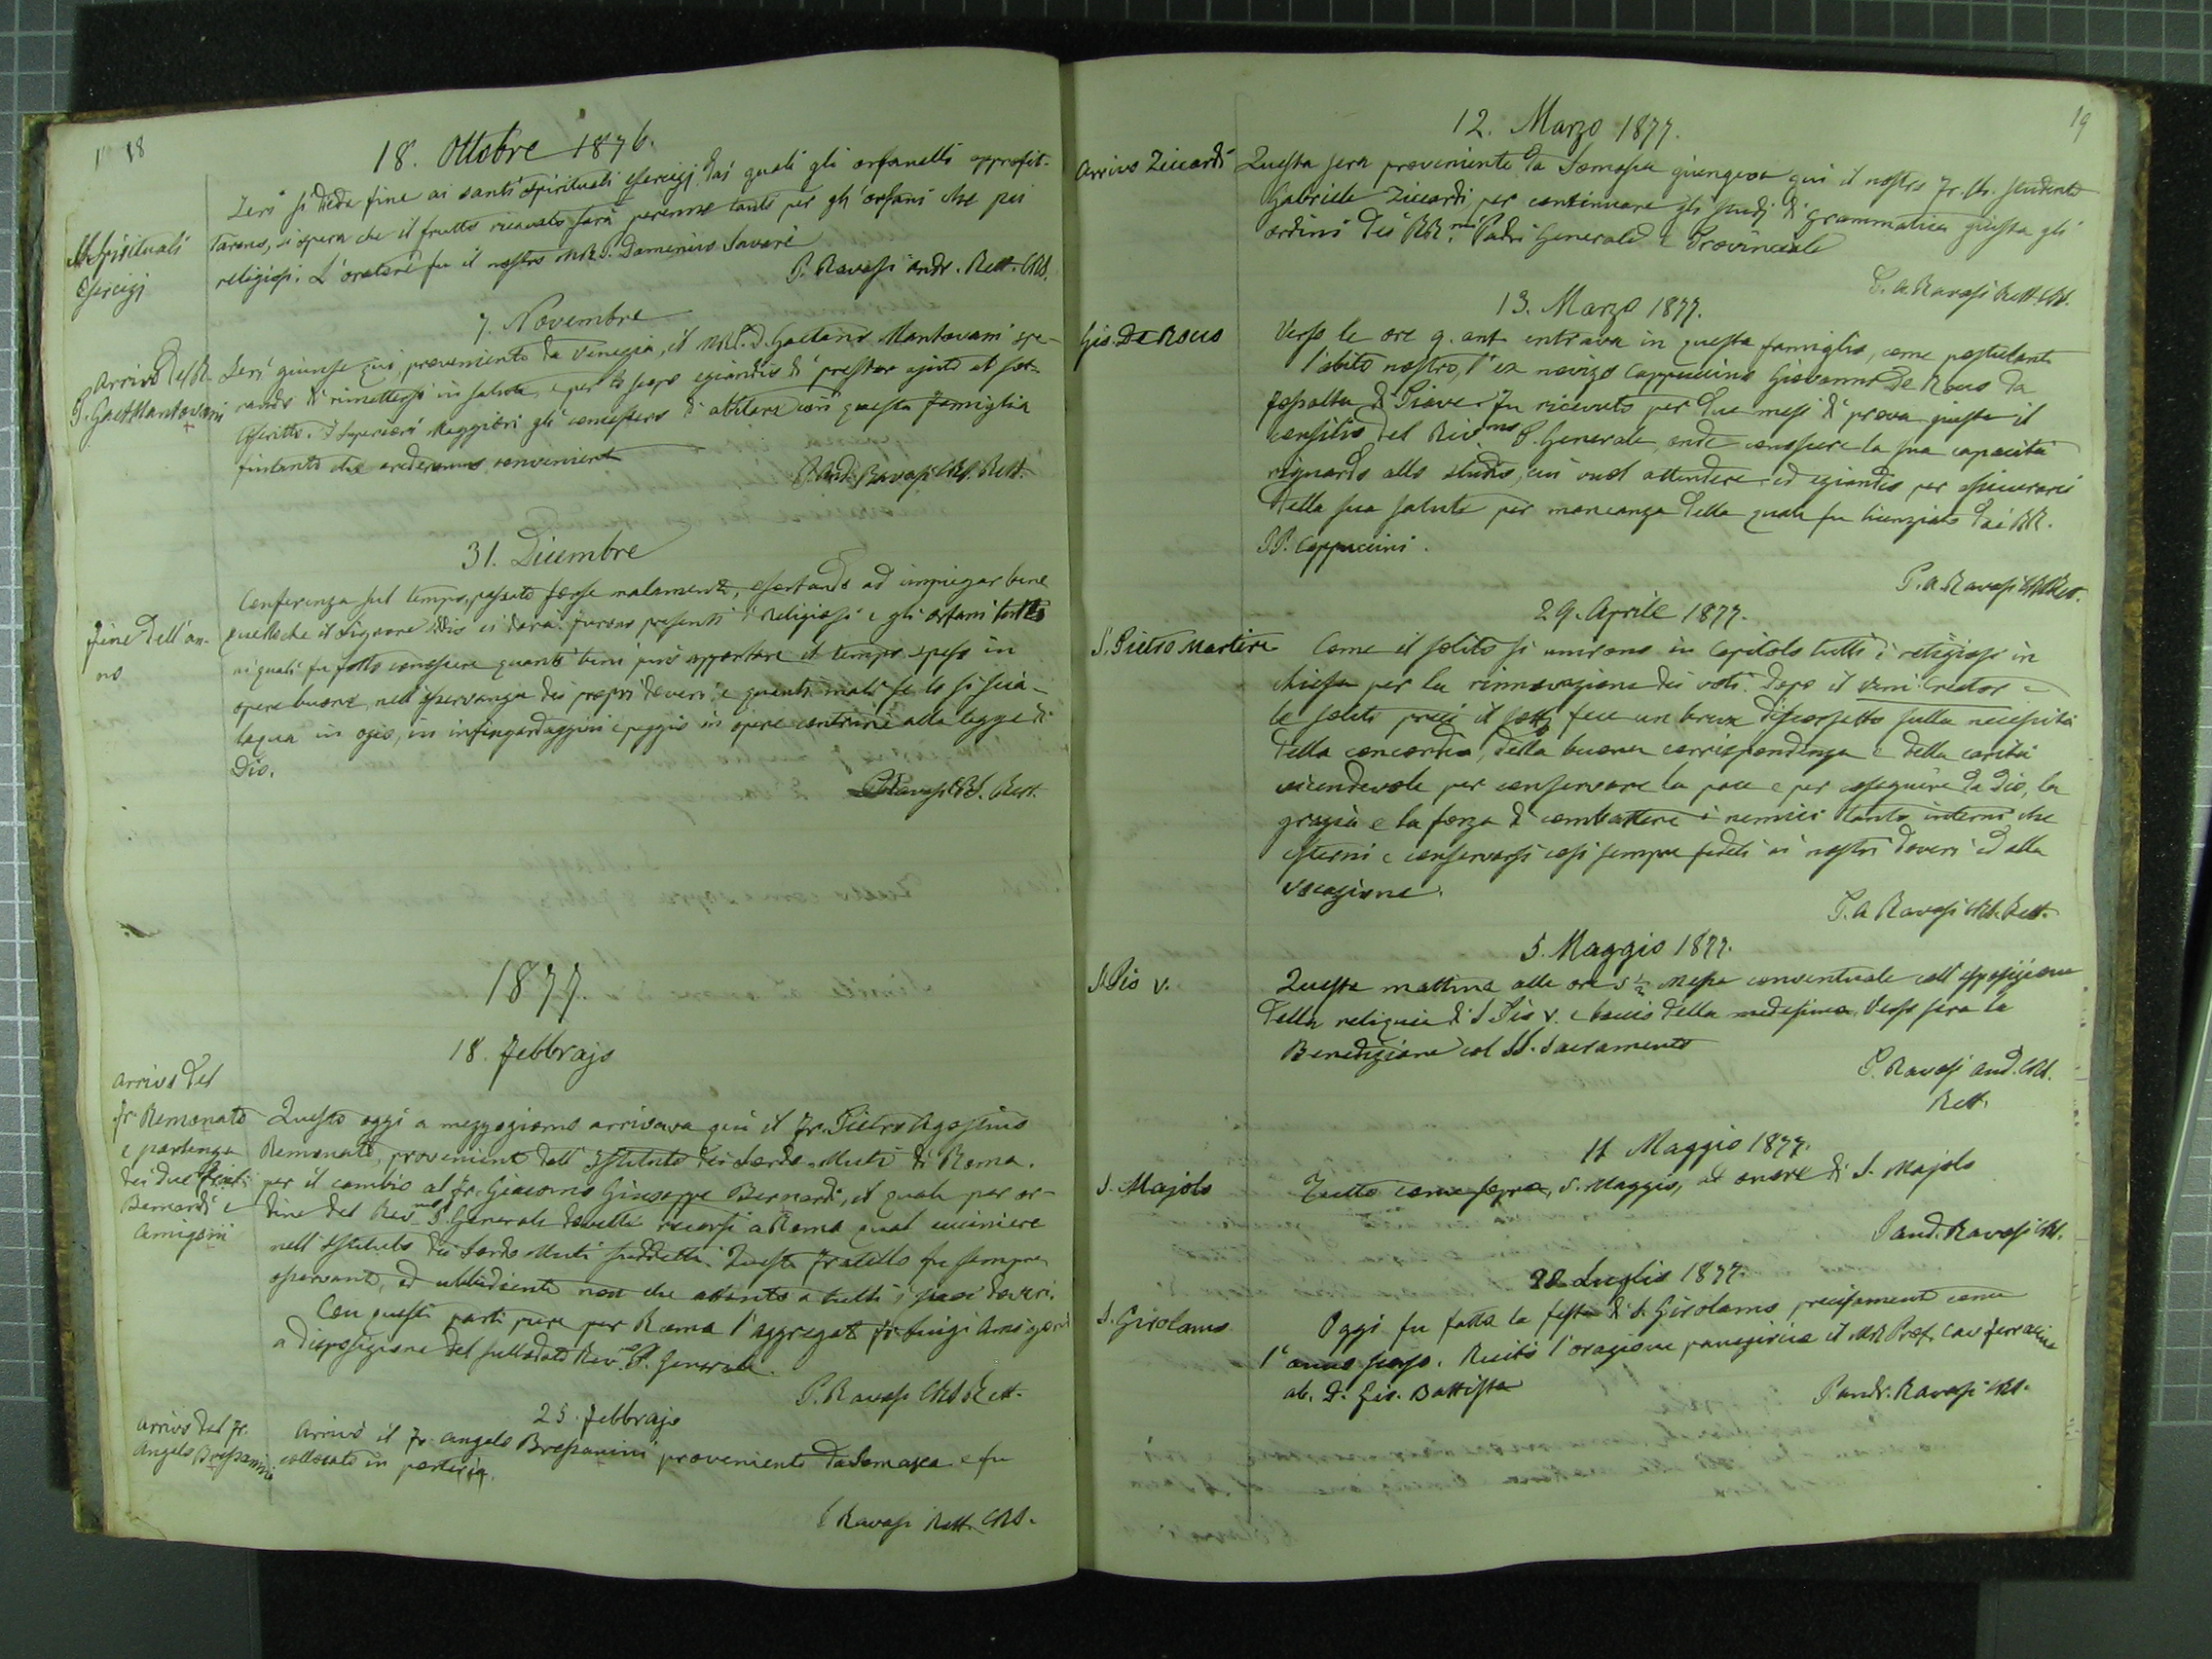 18
18. Ottobre 1876.
SS. Spirituali
Esercizj
Jeri si diede fine ai santi spirituali esercizj dai quali gli orfanelli approfit-
tarono, si spera che il frutto ricavato sarà perenne tanto per gli orfani che pei
religiosi. L'oratore fu il nostro M.R.P. Domenico Savarè
P. Ravasi Andr. Rett. CRS.
7. Novembre
Arrivo del R.
P. Gaet. Mantovani
Jeri giunse qui, proveniente da Venezia, il M.R.P. D. Gaetano Mantovani spe-
rando di rimettersi in salute, e per lo scopo eziandio di prestar ajuto al sot-
toscritto. I Superiori Maggiori gli concessero di abitare con questa famiglia
fintanto che crederanno conveniente
P. And. Ravasi CRS. Rett.
31. Dicembre
fine dell'an-
no
Conferenza sul tempo, passato forse malamente, esortando ad impiegar bene
quello che il Signore Iddio ci darà. furono presenti i Religiosi e gli orfani tutti
ai quali fu fatto conoscere quanti beni può apportare il tempo speso in
opere buone, nell'osservanza dei propri doveri e quanti mali se lo si scia-
lacqua in ozio, in infingardaggini e peggio in opere contrarie alla legge di
Dio.
P. Ravasi CRS. Rett.
1877.
18. febbrajo
Arrivo del
fr. Remonato
e partenza
dei due fratelli
Bernardi e
Amigoni
Questo oggi a mezzogiorno arrivava qui il Fr. Pietro Agostino
Remonato, proveniente dall'Istituto dei Sordo-Muti di Roma.
per il cambio al Fr. Giacomo Giuseppe Bernardi, il quale per or-
dine del Rev.mo P. Generale dovette recarsi a Roma qual cuciniere
nell'Istituto dei Sordo Muti suddetti. Questo fratello fu sempre
osservante, ed ubbidiente non che attento a tutti i suoi doveri.
Con questi partì pure per Roma l'aggregato fr. Luigi Amigoni
a disposizione del sullodato Rev.mo P. Generale.
P. Ravasi CRS Rett.
25. febbrajo
Arrivo del Fr.
Angelo Bressanini
Arrivò il Fr. Angelo Bressanini proveniente da Somasca e fu
collocato in porteria.
P. Ravasi Rett. CRS.
19
12. Marzo 1877.
Arrivo Ziccardi
Questa sera proveniente da Somasca giungeva qui il nostro Fr. Ch. studente
Gabriele Ziccardi, per continuare gli studj di grammatica giusta gli
ordini dei RR.mi Padri Generale e Provinciale
P. A. Ravasi Rett. CRS.
13. Marzo 1877.
Gio. De Rous
Verso le ore 9. ant. entrava in questa famiglia, come postulante
l'abito nostro, l'ex novizo Cappuccino Giovanni De Rous da
Fossalta di Piave. Fu ricevuto per due mesi di prova giusta il
consilio del Rev.mo P. Generale, onde conoscere la sua capacità
riguardo allo studio, cui vuol attendere ed eziandio per assicurarsi
della sua salute per mancanza della quale fu licenziato dai RR.
PP. Cappuccini.
P. A. Ravasi CRS Rett.
29. Aprile 1877.
S. Pietro Martire
Come il solito si unirono in Capitolo tutti i religiosi in
chiesa per la rinnovazione dei voti. Dopo il Veni Creator e
le solite preci il sott.o fece un breve discorsetto sulla necessità
della concordia, della buona corrispondenza e della carità
vicendevole per conservare la pace e per conseguire da Dio, la
grazia e la forza di combattere i nemici tanto interni che
esterni e conservarsi così sempre fedeli ai nostri doveri ed alla
vocazione.
P. A Ravasi CRS. Rett.
5. Maggio 1877.
S. Pio V.
Questa mattina alle ore 5 ½ Messa conventuale coll'esposizione
della reliquia di S. Pio V. e bacio della medesima. Verso sera la
Benedizione col SS. Sacramento
P. Ravasi And. CRS.
Rett.
11 Maggio 1877.
S. Majolo
Tutto come sopra, 5. Maggio, ad onore di S. Majolo
P And. Ravasi CRS.
22 Luglio 1877.
S. Girolamo
Oggi fu fatta la festa di S. Girolamo precisamente come
l'anno scorso. Recitò l'orazione panegirica il M.R. Prof. Cav
ab. D. Gio. Battista
P Andr. Ravasi CRS.